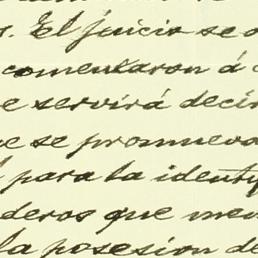 . El juicio se
comentaron á
e servirá decir
e se promueva
para la identif
deros que men
la posesion de